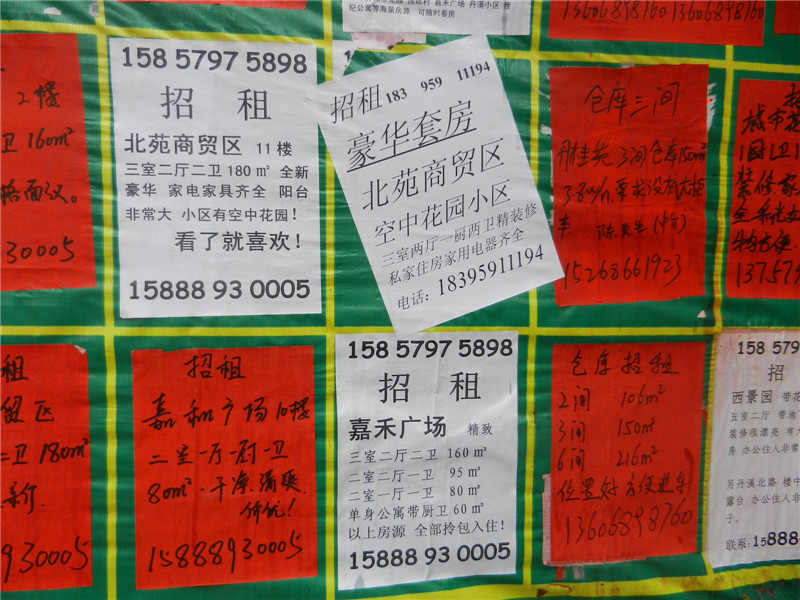 嘉禾广场 丹溪小区 世
纪公寓等海量房源 可随时看房
13606898760 13606898760
2楼
卫 160m²
面议。
30005
158 5797 5898
招 租
北苑商贸区 11楼
三室二厅二卫 180㎡ 全新
豪华 家电家具齐全 阳台
非常大 小区有空中花园！
看了就喜欢！
15888 93 0005
招租 183 959 11194
豪华套房
北苑商贸区
空中花园小区
三室两厅一厨两卫精装修
私家住房家用电器齐全
电话：18395911194
仓库三间
3间仓库150m²
15268661923
城市花
1厨1卫
装修家
13757
租
贸区
二卫 180m²
930005
招租
嘉和广场10楼
二室一厅一厨一卫
80m²·干净清爽
价优！
15888930005
158 5797 5898
招 租
嘉禾广场 精致
三室二厅二卫 160㎡
二室二厅一卫 95㎡
二室一厅一卫 80㎡
单身公寓带厨卫 60㎡
以上房源 全部拎包入住！
15888 93 0005
仓库招租
2间 106m²
3间 150m²
6间 216m²
位置好方便进车
13606898760
158 579
招
西景园 带花
五室二厅 带地
装修很漂亮 有大
房 办公住人非常
另丹溪北路 楼中
露台 办公住人非
子。
联系：15888